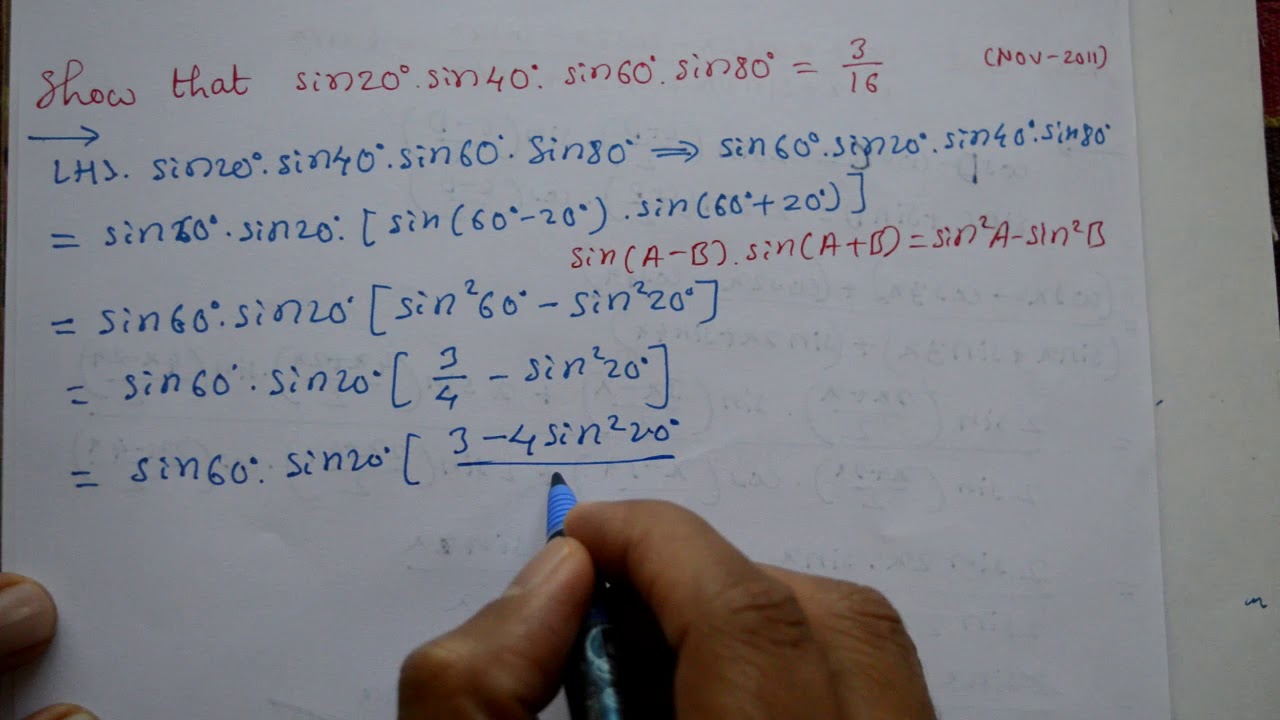 Show that sin20°.sin40°. sin60°. sin80° = 3/16 (NOV-2011)
LHS. sin20°.sin40°.sin60°. Sin80° ⇒ sin60°.sin20°.sin40°.sin80°
= sin60°.sin20°.[sin(60°-20°).sin(60°+20°)]
sin(A-B). sin(A+B) = sin²A-sin²B
= sin60°.sin20°[sin²60° - sin²20°]
= sin60°.sin20°[3/4 - sin²20°]
= sin60°. sin20°[3-4sin²20°